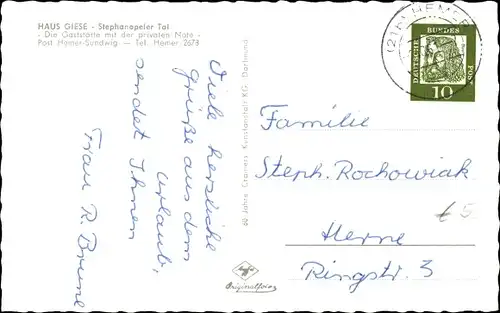 HAUS GIESE - Stephanopeler Tal
- Die Gaststätte mit der privaten Note -
Post Hemer-Sundwig — Tel. Hemer 2673
Viele herzliche
Grüße aus dem
Urlaub,
sendet Ihnen
Frau R. Brune
60 Jahre Cramers Kunstanstalt KG., Dortmund
Originalfoto
(21b) HEMER
DEUTSCHE BUNDESPOST
10
Familie
Steph. Rochowiak
Herne
Ringstr. 3
€ 5